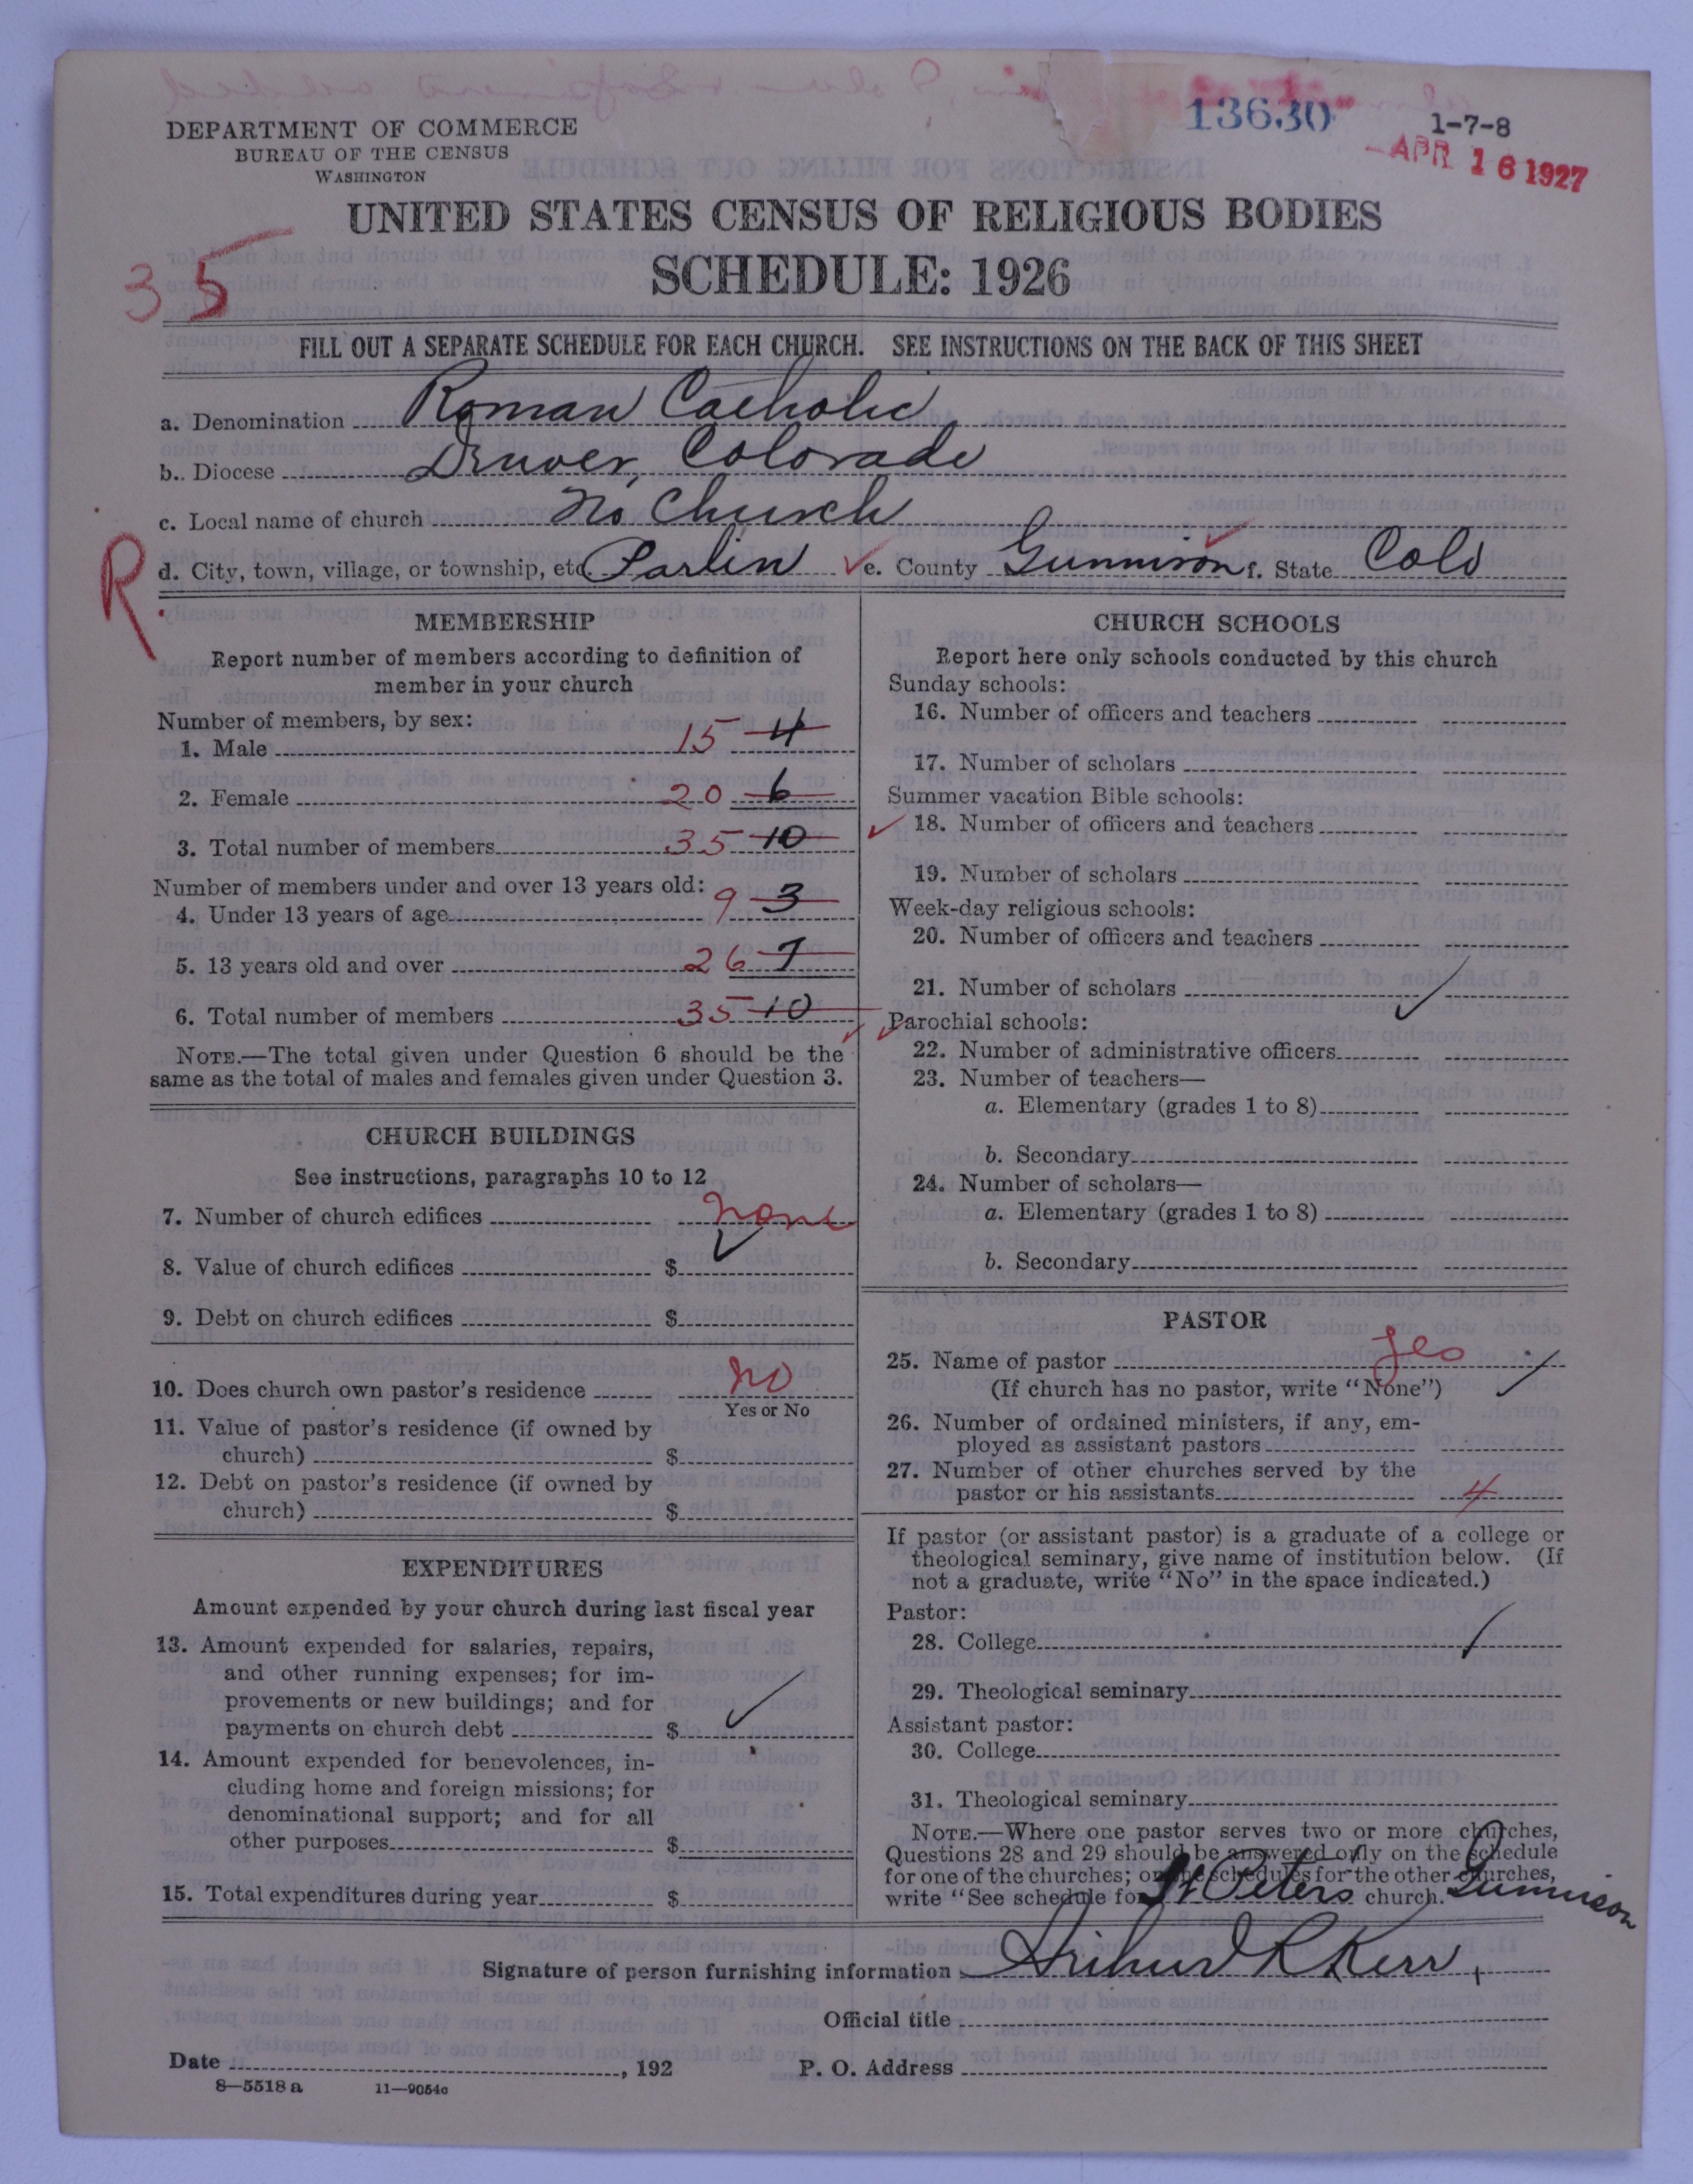 13630
1-7-8
APR 16 1927
DEPARTMENT OF COMMERCE
BUREAU OF THE CENSUS
WASHINGTON
UNITED STATES CENSUS OF RELIGIOUS BODIES
SCHEDULE: 1926
35
FILL OUT A SEPARATE SCHEDULE FOR EACH CHURCH. SEE INSTRUCTIONS ON THE BACK OF THIS SHEET
a. Denomination Roman Catholic
b. Diocese Denver, Colorado
c. Local name of church No Church
d. City, town, village, or township, etc Parlin e. County Gunnison f. State Colo
R.
MEMBERSHIP
Report number of members according to definition of
member in your church
Number of members, by sex:
1. Male 15 4
2. Female 20 6
3. Total number of members 35 10
Number of members under and over 13 years old:
4. Under 13 years of age 9 3
5. 13 years old and over 26 7
6. Total number of members 35 10
NOTE.—The total given under Question 6 should be the
same as the total of males and females given under Question 3.
CHURCH BUILDINGS
See instructions, paragraphs 10 to 12
7. Number of church edifices none
8. Value of church edifices $
9. Debt on church edifices $
10. Does church own pastor's residence No
Yes or No
11. Value of pastor's residence (if owned by
church) $
12. Debt on pastor's residence (if owned by
church) $
EXPENDITURES
Amount expended by your church during last fiscal year
13. Amount expended for salaries, repairs,
and other running expenses; for im-
provements or new buildings; and for
payments on church debt $
14. Amount expended for benevolences, in-
cluding home and foreign missions; for
denominational support; and for all
other purposes $
15. Total expenditures during year $
CHURCH SCHOOLS
Report here only schools conducted by this church
Sunday schools:
16. Number of officers and teachers
17. Number of scholars
Summer vacation Bible schools:
18. Number of officers and teachers
19. Number of scholars
Week-day religious schools:
20. Number of officers and teachers
21. Number of scholars
Parochial schools:
22. Number of administrative officers
23. Number of teachers—
a. Elementary (grades 1 to 8)
b. Secondary
24. Number of scholars—
a. Elementary (grades 1 to 8)
b. Secondary
PASTOR
25. Name of pastor yes
(If church has no pastor, write "None")
26. Number of ordained ministers, if any, em-
ployed as assistant pastors
27. Number of other churches served by the
pastor or his assistants 4
If pastor (or assistant pastor) is a graduate of a college or
theological seminary, give name of institution below. (If
not a graduate, write "No" in the space indicated.)
Pastor:
28. College
29. Theological seminary
Assistant pastor:
30. College
31. Theological seminary
NOTE.—Where one pastor serves two or more churches,
Questions 28 and 29 should be answered only on the schedule
for one of the churches; on the schedules for the other churches,
write "See schedule for St Peters church. Gunnison
Signature of person furnishing information Arthur R Kerr
Official title
Date , 192 P. O. Address
8—5518 a 11—9054c